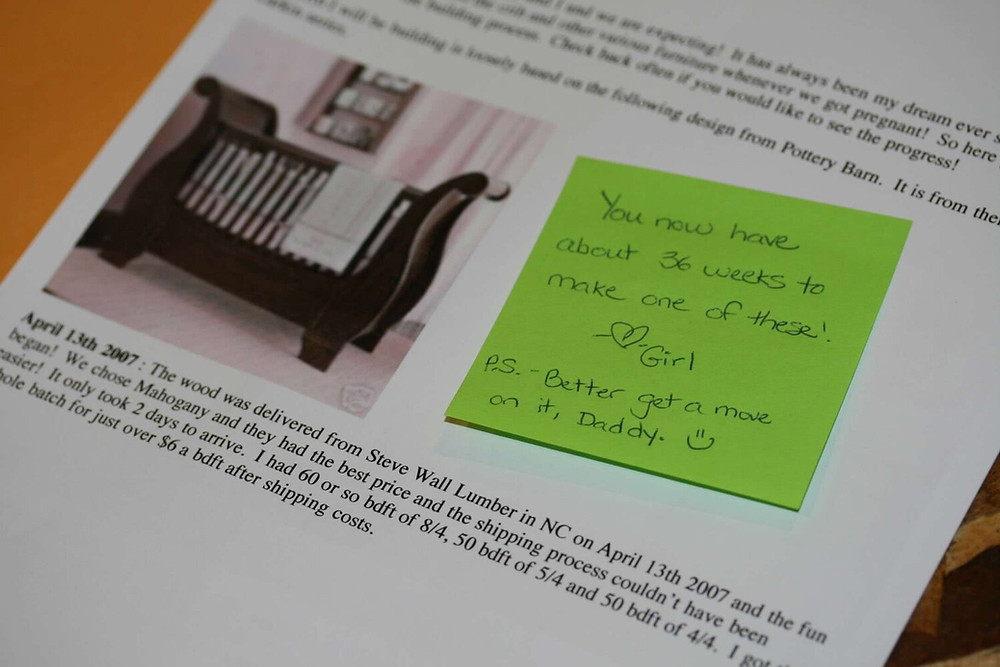 and I and we are expecting! It has always been my dream ever s
the crib and other various furniture whenever we got pregnant! So here
building process. Check back often if you would like to see the progress!
I will be building is loosely based on the following design from Pottery Barn. It is from the
series.
You now have
about 36 weeks to
make one of these!
-♡-Girl
P.S. - Better get a move
on it, Daddy. ☺
April 13th 2007 : The wood was delivered from Steve Wall Lumber in NC on April 13th 2007 and the fun
began! We chose Mahogany and they had the best price and the shipping process couldn't have been
easier! It only took 2 days to arrive. I had 60 or so bdft of 8/4, 50 bdft of 5/4 and 50 bdft of 4/4. I got
hole batch for just over $6 a bdft after shipping costs.